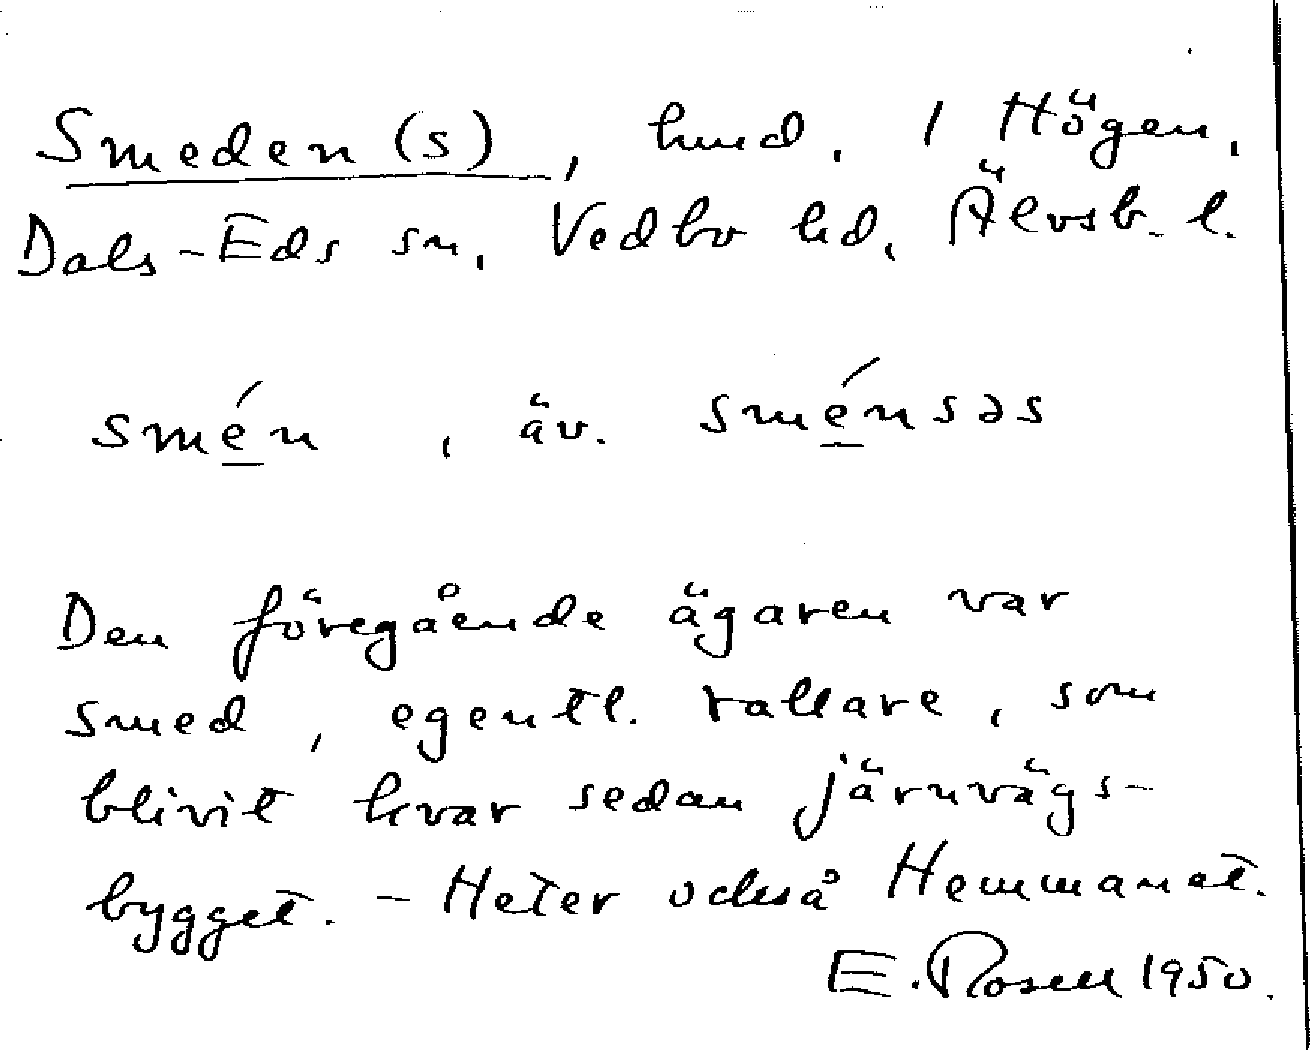 Smeden (s), hmd. 1 Högen,
Dals-Eds sn, Vedbo hd, Älvsb. l.
smé̱n , äv. smé̱nsəs
Den föregående ägaren var
smed, egentl. rallare, som
blivit kvar sedan järnvägs-
bygget. - Heter också Hemmanet.
E. Rosell 1950.